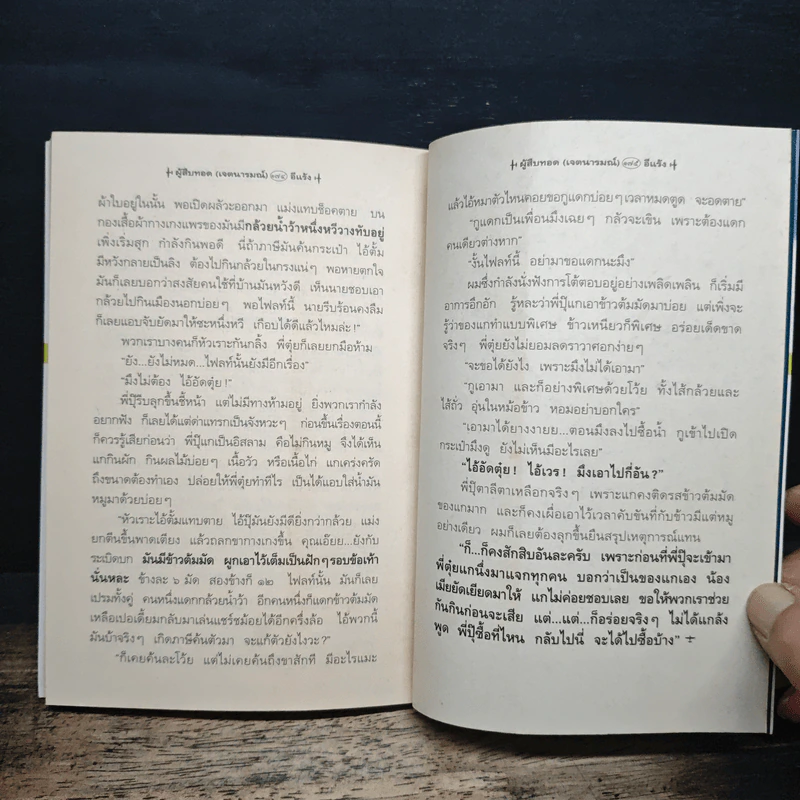 ผู้สืบทอด (เจตนารมณ์) ๑๗๔ อีแร้ง
ผ้าใบอยู่ในนั้น พอเปิดผลัวะออกมา แม่งแทบช็อคตาย บน
กองเสื้อผ้ากางเกงแพรของมันมีกล้วยน้ำว้าหนึ่งหวีวางทับอยู่
เพิ่งเริ่มสุก กำลังกินพอดี นี่ถ้าภาษีมันค้นกระเป๋า ไอ้ตั้ม
มีหวังกลายเป็นลิง ต้องไปกินกล้วยในกรงแน่ๆ พอหายตกใจ
มันก็เลยบอกว่าสงสัยคนใช้ที่บ้านมันหวังดี เห็นนายชอบเอา
กล้วยไปกินเมืองนอกบ่อยๆ พอไฟลท์นี้ นายรีบร้อนคงลืม
ก็เลยแอบจับยัดมาให้ซะหนึ่งหวี เกือบได้ดีแล้วไหมล่ะ!"
พวกเราบางคนก็หัวเราะกันกลิ้ง พี่ตุ๋ยก็เลยยกมือห้าม
"ยัง...ยังไม่หมด...ไฟลท์นั้นยังมีอีกเรื่อง"
"มึงไม่ต้อง ไอ้อัดตุ๋ย!"
พี่ปุ๊รีบลุกขึ้นชี้หน้า แต่ไม่มีทางห้ามอยู่ ยิ่งพวกเรากำลัง
อยากฟัง ก็เลยได้แต่ด่าแทรกเป็นจังหวะๆ ก่อนขึ้นเรื่องตอนนี้
ก็ควรรู้เสียก่อนว่า พี่ปุ๊แกเป็นอิสลาม คือไม่กินหมู จึงได้เห็น
แกกินผัก กินผลไม้บ่อยๆ เนื้อวัว หรือเนื้อไก่ แกเคร่งครัด
ถึงขนาดต้องทำเอง ปล่อยให้พี่ตุ๋ยทำทีไร เป็นได้แอบใส่น้ำมัน
หมูมาด้วยบ่อยๆ
"หัวเราะไอ้ตั้มแทบตาย ไอ้ปุ๊มันยังมีดียิ่งกว่ากล้วย แม่ง
ยกตีนขึ้นพาดเตียง แล้วถลกขากางเกงขึ้น คุณเอ๊ยย...ยังกับ
ระเบิดบก มันมีข้าวต้มมัด ผูกเอาไว้เต็มเป็นฝักๆ รอบข้อเท้า
นั่นหละ ข้างละ ๖ มัด สองข้างก็ ๑๒ ไฟลท์นั้น มันก็เลย
เปรมทั้งคู่ คนหนึ่งแดกกล้วยน้ำว้า อีกคนหนึ่งก็แดกข้าวต้มมัด
เหลือเปอเดี้ยมกลับมาเล่นแชร์ชม้อยได้อีกครึ่งล้อ ไอ้พวกนี้
มันบ้าจริงๆ เกิดภาษีค้นตัวมา จะแก้ตัวยังไงวะ?"
"ก็เคยค้นละโว้ย แต่ไม่เคยค้นถึงขาสักที มีอะไรแมะ
ผู้สืบทอด (เจตนารมณ์) ๑๗๕ อีแร้ง
แล้วไอ้หมาตัวไหนคอยขอกูแดกบ่อยๆ เวลาหมดตูด จะอดตาย"
"กูแดกเป็นเพื่อนมึงเฉยๆ กลัวจะเขิน เพราะต้องแดก
คนเดียวต่างหาก"
"งั้นไฟลท์นี้ อย่ามาขอแดกนะมึง"
ผมซึ่งกำลังนั่งฟังการโต้ตอบอยู่อย่างเพลิดเพลิน ก็เริ่มมี
อาการอึกอัก รู้หละว่าพี่ปุ๊แกเอาข้าวต้มมัดมาบ่อย แต่เพิ่งจะ
รู้ว่าของแกทำแบบพิเศษ ข้าวเหนียวก็พิเศษ อร่อยเด็ดขาด
จริงๆ พี่ตุ๋ยยังไม่ยอมลดราวาศอกง่ายๆ
"จะขอได้ยังไง เพราะมึงไม่ได้เอามา"
"กูเอามา และก็อย่างพิเศษด้วยโว้ย ทั้งไส้กล้วยและ
ไส้ถั่ว อุ่นในหม้อข้าว หอมอย่าบอกใคร"
"เอามาได้ยางงายย...ตอนมึงลงไปซื้อน้ำ กูเข้าไปเปิด
กระเป๋ามึงดู ยังไม่เห็นมีอะไรเลย"
"ไอ้อัดตุ๋ย! ไอ้เวร! มึงเอาไปกี่อัน?"
พี่ปุ๊ตาลีตาเหลือกจริงๆ เพราะแกคงติดรสข้าวต้มมัด
ของแกมาก และก็คงเผื่อเอาไว้เวลาคับขันที่กับข้าวมีแต่หมู
อย่างเดียว ผมก็เลยต้องลุกขึ้นยืนสรุปเหตุการณ์แทน
"ก็...ก็คงสักสิบอันละครับ เพราะก่อนที่พี่ปุ๊จะเข้ามา
พี่ตุ๋ยแกนึ่งมาแจกทุกคน บอกว่าเป็นของแกเอง น้อง
เมียยัดเยียดมาให้ แกไม่ค่อยชอบเลย ขอให้พวกเราช่วย
กันกินก่อนจะเสีย แต่...แต่...ก็อร่อยจริงๆ ไม่ได้แกล้ง
พูด พี่ปุ๊ซื้อที่ไหน กลับไปนี่ จะได้ไปซื้อบ้าง"